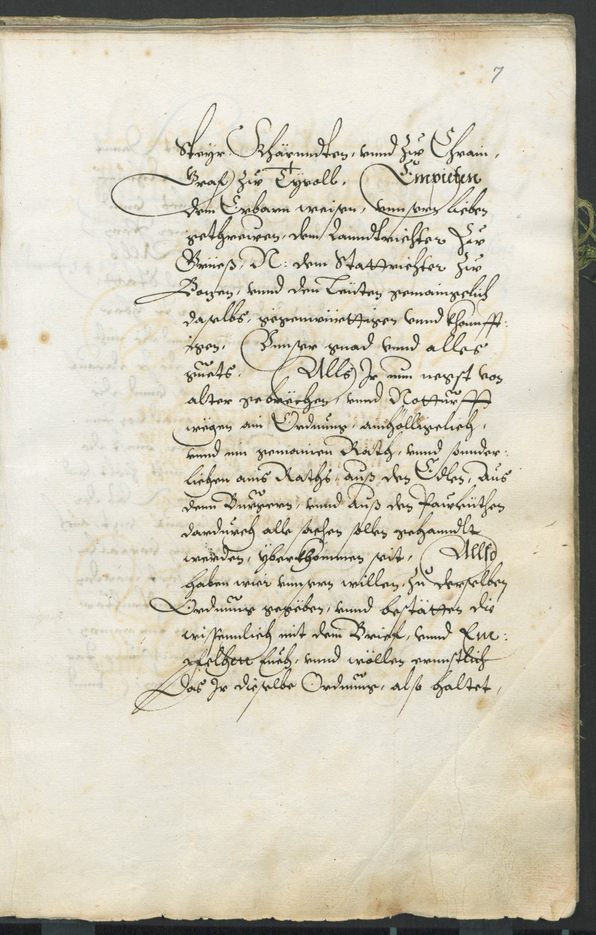 7
Steyr, Khärnndten, vnnd zuo Chrain,
Graf zuo Tyroll, Empieten
dem Erbarn weisen, vnnsern lieben
gethrewen, dem Lanndtrichter zuo
Grieß, N: dem Stattrichter zuo
Bozen, vnnd den Leüten gemaingelich
daselbs, gegenwürttigen vnnd khönfft:
igen, Vnnser gnad vnnd alles
guets. Alls Ir nun negst von
alter gebrechen, vnnd Notturfft
wegen ain Ordnung, ainhölligelich,
vnnd mit gemainen Rath, vnnd sonder:
lichen ains Raths, auß den Edlen, Aus
dem Burgern, vnnd Auß den Paurleüthen
dardurch alle sachen sollen gehanndlt
werden, yberkhommen seit, Allso
haben wier vnnsern willen, zu derselben
Ordnung gegeben, vnnd bestätten die
wissenntlich mit dem Brief, vnnd Em:
pfelhen Euch, vnnd wöllen ernnstlich
Das Ir dieselbe Ordnung, also haltet,